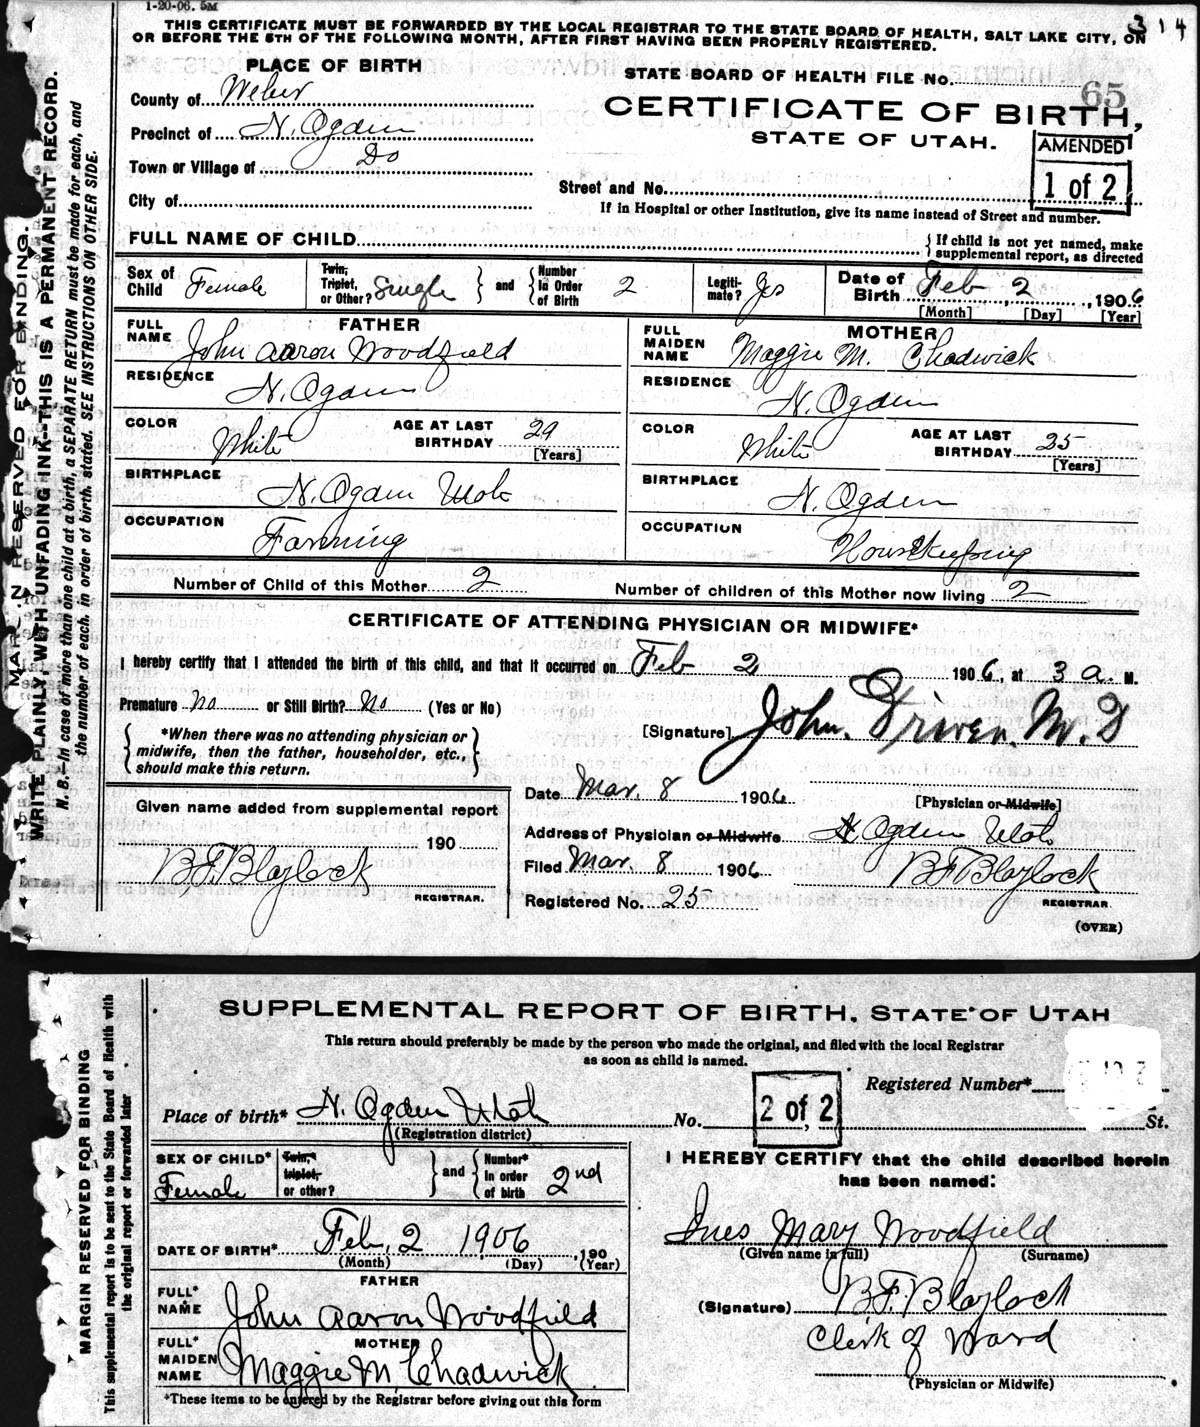 1-20-06. 5M
3 1 4
THIS CERTIFICATE MUST BE FORWARDED BY THE LOCAL REGISTRAR TO THE STATE BOARD OF HEALTH, SALT LAKE CITY, ON
OR BEFORE THE 5TH OF THE FOLLOWING MONTH, AFTER FIRST HAVING BEEN PROPERLY REGISTERED.
PLACE OF BIRTH
County of Weber
Precinct of N. Ogden
Town or Village of Do
City of
STATE BOARD OF HEALTH FILE No. 65
CERTIFICATE OF BIRTH,
STATE OF UTAH.
AMENDED
1 of 2
Street and No.
If in Hospital or other Institution, give its name instead of Street and number.
FULL NAME OF CHILD
If child is not yet named, make
supplemental report, as directed
Sex of Child Female
Twin, Triplet, or Other? Single
and Number In Order of Birth 2
Legiti-mate? Yes
Date of Birth Feb 2, 1906
[Month] [Day] [Year]
FATHER
FULL NAME John Aaron Woodfield
RESIDENCE N. Ogden
COLOR White
AGE AT LAST BIRTHDAY 29
[Years]
BIRTHPLACE N. Ogden Utah
OCCUPATION Farming
MOTHER
FULL MAIDEN NAME Maggie M. Chadwick
RESIDENCE N. Ogden
COLOR White
AGE AT LAST BIRTHDAY 25
[Years]
BIRTHPLACE N. Ogden
OCCUPATION Housekeeping
Number of Child of this Mother 2
Number of children of this Mother now living 2
CERTIFICATE OF ATTENDING PHYSICIAN OR MIDWIFE*
I hereby certify that I attended the birth of this child, and that it occurred on Feb 2 1906, at 3 a. M.
Premature no or Still Birth? No (Yes or No)
*When there was no attending physician or
midwife, then the father, householder, etc.,
should make this return.
[Signature] John Driver. M.D
[Physician or Midwife]
Date Mar. 8 1906
Address of Physician or Midwife N Ogden Utah
Filed Mar. 8 1906 B F Blaylock
REGISTRAR.
Registered No. 25
(OVER)
Given name added from supplemental report
190
B.F. Blaylock
REGISTRAR.
MARGIN RESERVED FOR BINDING.
WRITE PLAINLY, WITH UNFADING INK--THIS IS A PERMANENT RECORD.
N. B.--In case of more than one child at a birth, a SEPARATE RETURN must be made for each, and
the number of each, in order of birth, stated. SEE INSTRUCTIONS ON OTHER SIDE.
SUPPLEMENTAL REPORT OF BIRTH. STATE OF UTAH
This return should preferably be made by the person who made the original, and filed with the local Registrar
as soon as child is named.
Registered Number*
Place of birth* N. Ogden Utah No. St.
(Registration district)
2 of 2
SEX OF CHILD* Female
Twin,* triplet, or other?
and Number* in order of birth 2nd
DATE OF BIRTH* Feb. 2 1906, 190
(Month) (Day) (Year)
FATHER
FULL* NAME John Aaron Woodfield
MOTHER
FULL* MAIDEN NAME Maggie M. Chadwick
*These items to be entered by the Registrar before giving out this form
I HEREBY CERTIFY that the child described herein
has been named:
Ines Mary Woodfield
(Given name in full) (Surname)
(Signature) B.F. Blaylock
Clerk of Ward
(Physician or Midwife)
MARGIN RESERVED FOR BINDING
This supplemental report is to be sent to the State Board of Health with
the original report or forwarded later